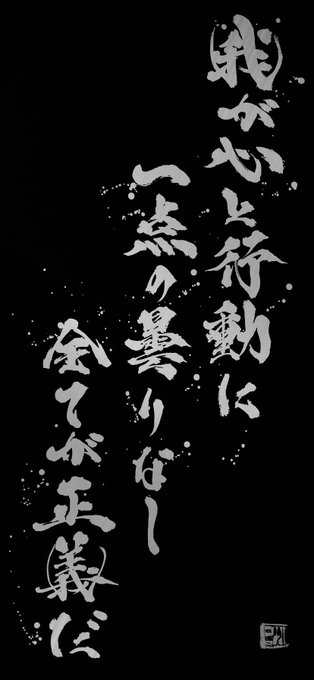 我が心と行動に
一点の曇りなし
全てが正義だ